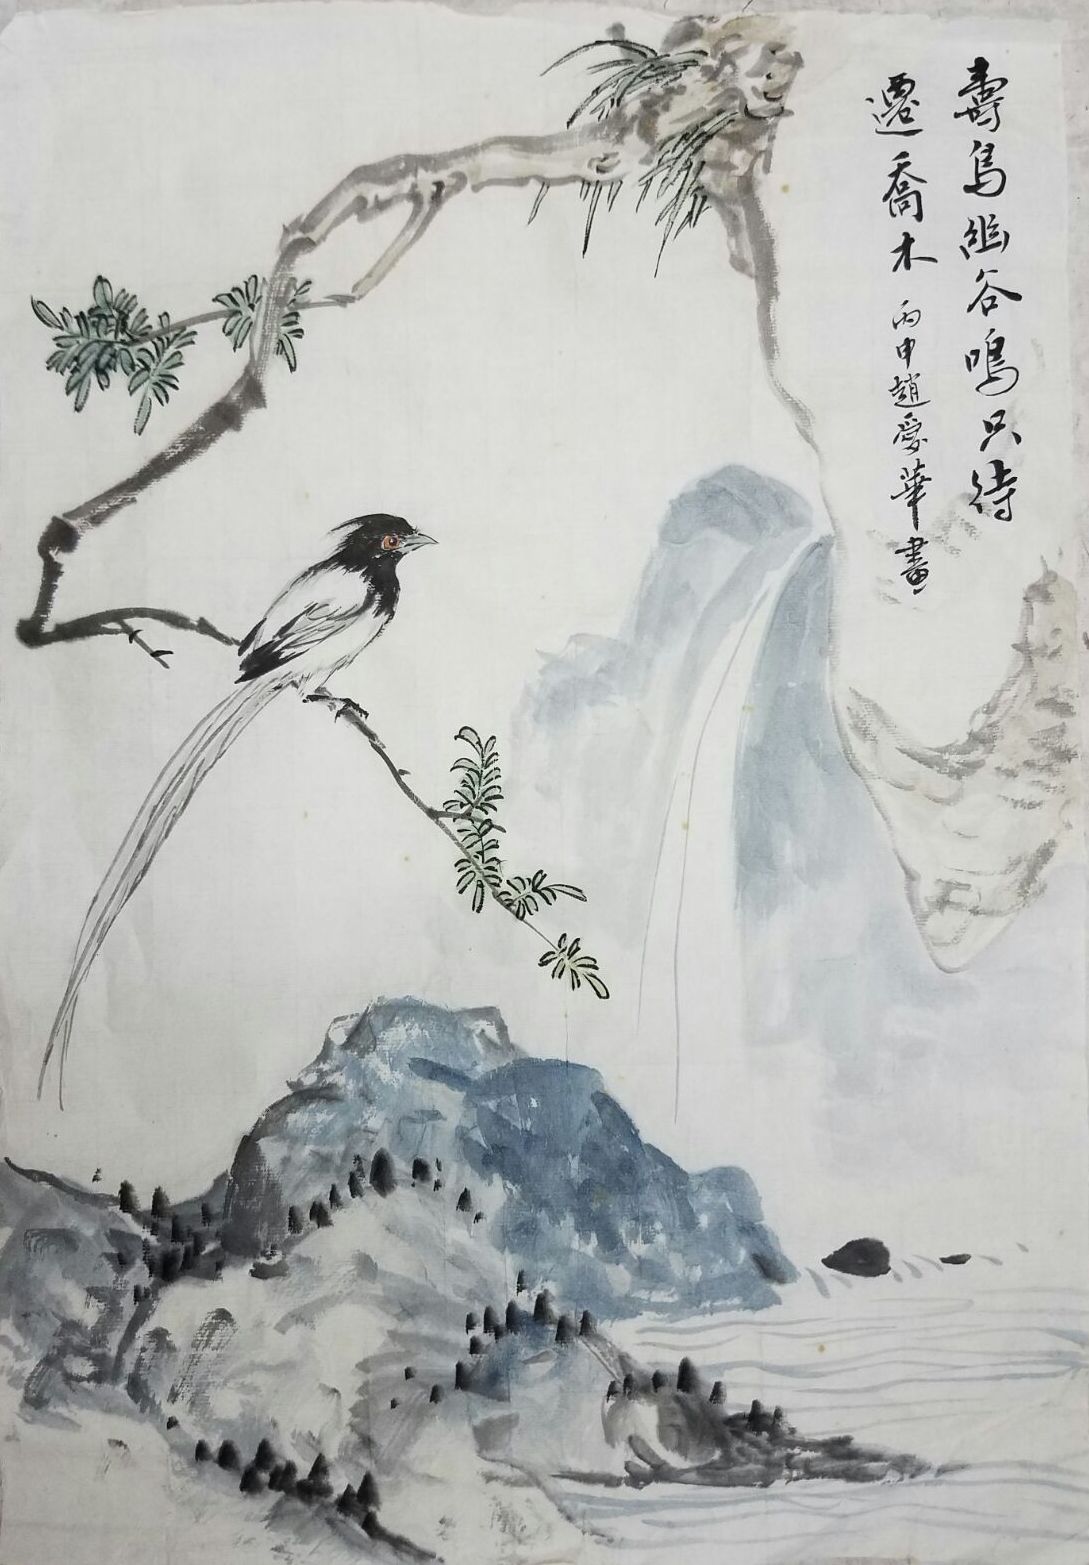 壽鳥幽谷鳴只待
遷喬木
丙申趙愛華畫